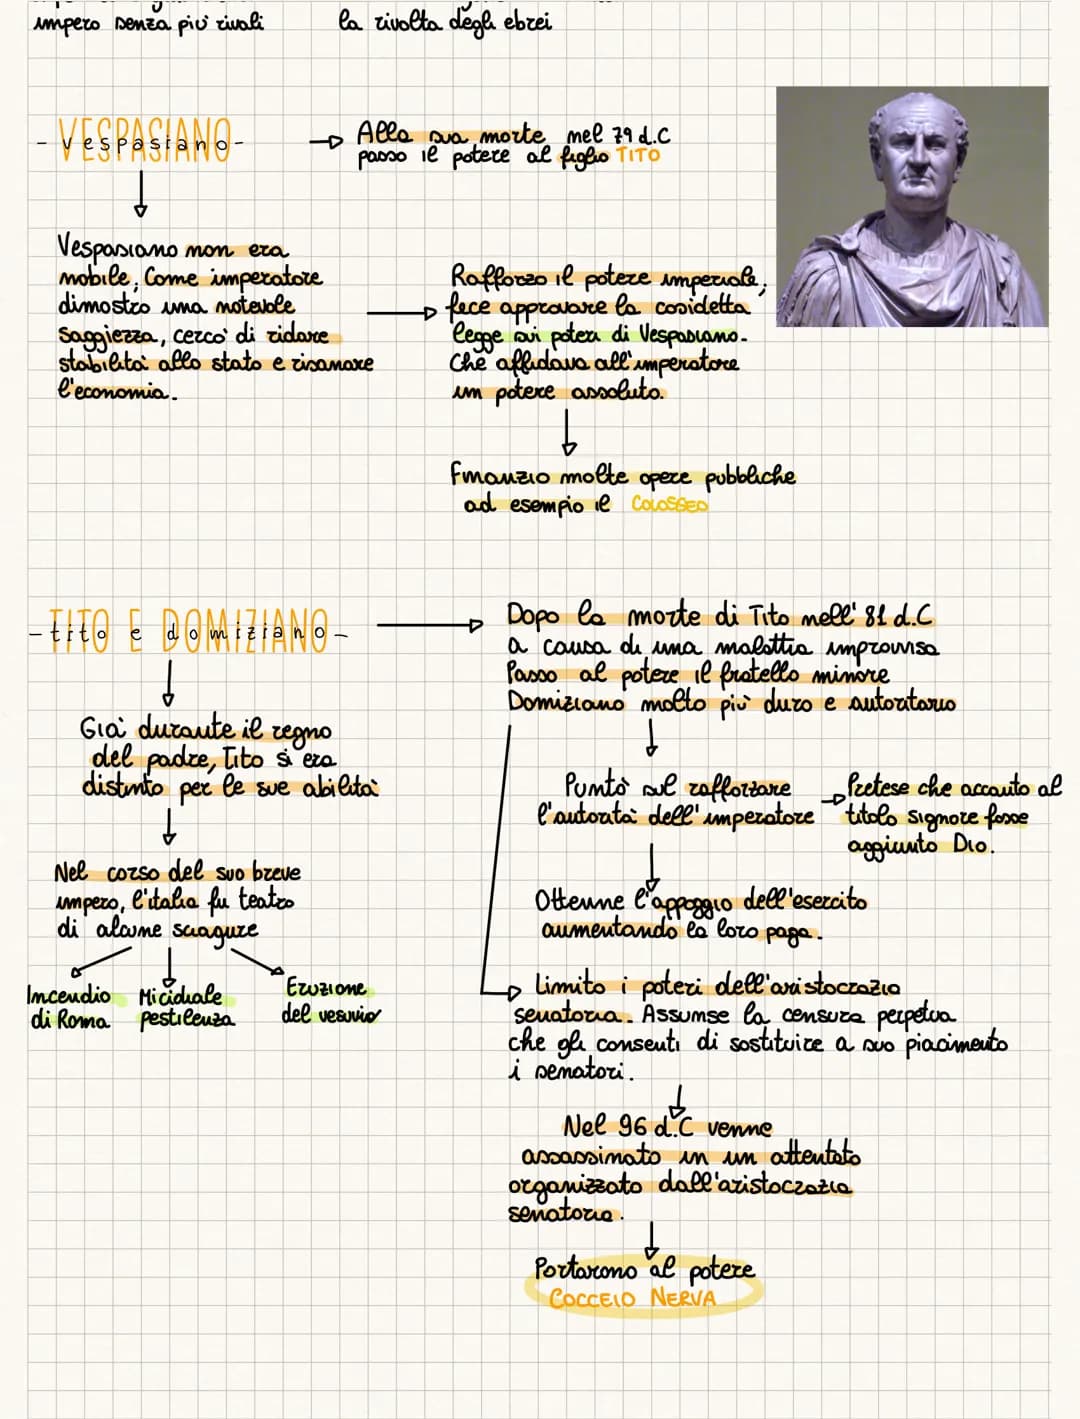 impero senza più rivali
la rivolta degli ebrei
- VESPASIANO -
Vespasiano
Alla sua morte nel 79 d.C
passo il potere al figlio TITO
Vespasiano non era
nobile, Come imperatore
dimostro una notevole
saggiezza, cercò di ridare
stabilità allo stato e risanare
l'economia.
Rafforzo il potere imperiale,
fece approvare la cosidetta
legge sui poteri di Vespasiano.
Che affidava all'imperatore
un potere assoluto.
Finanzio molte opere pubbliche
ad esempio il COLOSSEO
- TITO E DOMIZIANO -
tito e domiziano
Già durante il regno
del padre, Tito si era
distinto per le sue abilità
Nel corso del suo breve
impero, l'italia fu teatro
di alcune sciagure
Incendio
di Roma
Micidiale
pestilenza
Eruzione
del vesuvio
Dopo la morte di Tito nell' 81 d.C
a causa di una malattia improvvisa
Passo al potere il fratello minore
Domiziano molto più duro e autoritario
Puntò sul rafforzare
l'autorità dell'imperatore
Pretese che accanto al
titolo signore fosse
aggiunto Dio.
Ottenne l'appoggio dell'esercito
aumentando la loro paga.
Limito i poteri dell'aristocrazia
senatoria. Assunse la censura perpetua
che gli consenti di sostituire a suo piacimento
i senatori.
Nel 96 d.C venne
assassinato in un attentato
organizzato dall'aristocrazia
senatoria.
Portarono al potere
COCCEIO NERVA